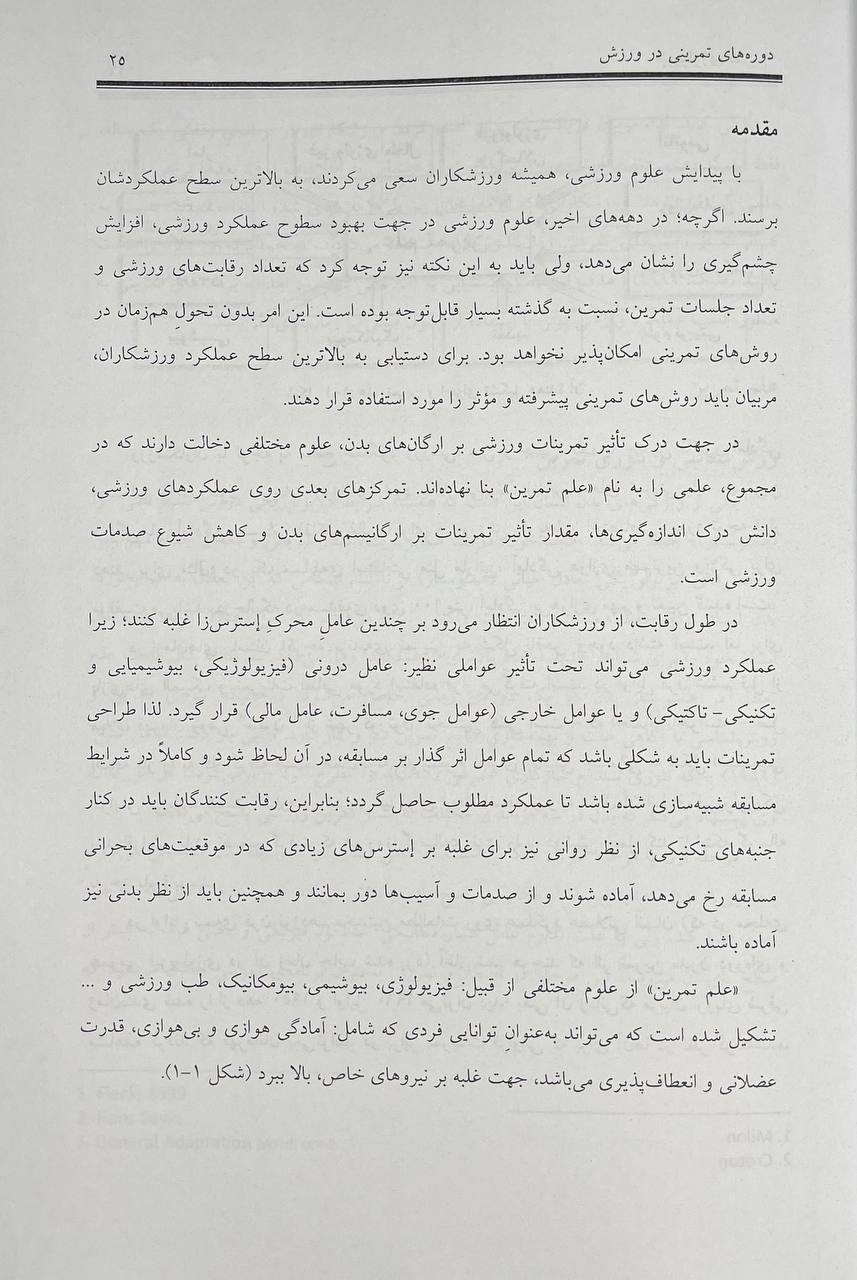 دوره‌های تمرینی در ورزش ۲۵
مقدمه
با پیدایش علوم ورزشی، همیشه ورزشکاران سعی می‌کردند، به بالاترین سطح عملکردشان
برسند. اگرچه؛ در دهه‌های اخیر، علوم ورزشی در جهت بهبود سطوح عملکرد ورزشی، افزایش
چشم‌گیری را نشان می‌دهد، ولی باید به این نکته نیز توجه کرد که تعداد رقابت‌های ورزشی و
تعداد جلسات تمرین، نسبت به گذشته بسیار قابل‌توجه بوده است. این امر بدون تحولِ هم‌زمان در
روش‌های تمرینی امکان‌پذیر نخواهد بود. برای دستیابی به بالاترین سطح عملکرد ورزشکاران،
مربیان باید روش‌های تمرینی پیشرفته و مؤثر را مورد استفاده قرار دهند.
در جهت درک تأثیر تمرینات ورزشی بر ارگان‌های بدن، علوم مختلفی دخالت دارند که در
مجموع، علمی را به نام «علم تمرین» بنا نهاده‌اند. تمرکزهای بعدی روی عملکردهای ورزشی،
دانش درک اندازه‌گیری‌ها، مقدار تأثیر تمرینات بر ارگانیسم‌های بدن و کاهش شیوع صدمات
ورزشی است.
در طول رقابت، از ورزشکاران انتظار می‌رود بر چندین عاملِ محرکِ إسترس‌زا غلبه کنند؛ زیرا
عملکرد ورزشی می‌تواند تحت تأثیر عواملی نظیر: عامل درونی (فیزیولوژیکی، بیوشیمیایی و
تکنیکی- تاکتیکی) و یا عوامل خارجی (عوامل جوی، مسافرت، عامل مالی) قرار گیرد. لذا طراحی
تمرینات باید به شکلی باشد که تمام عوامل اثر گذار بر مسابقه، در آن لحاظ شود و کاملاً در شرایط
مسابقه شبیه‌سازی شده باشد تا عملکرد مطلوب حاصل گردد؛ بنابراین، رقابت کنندگان باید در کنار
جنبه‌های تکنیکی، از نظر روانی نیز برای غلبه بر إسترس‌های زیادی که در موقعیت‌های بحرانی
مسابقه رخ می‌دهد، آماده شوند و از صدمات و آسیب‌ها دور بمانند و همچنین باید از نظر بدنی نیز
آماده باشند.
«علم تمرین» از علوم مختلفی از قبیل: فیزیولوژی، بیوشیمی، بیومکانیک، طب ورزشی و ...
تشکیل شده است که می‌تواند به‌عنوانِ توانایی فردی که شامل: آمادگی هوازی و بی‌هوازی، قدرت
عضلانی و انعطاف‌پذیری می‌باشد، جهت غلبه بر نیروهای خاص، بالا ببرد (شکل ۱-۱).